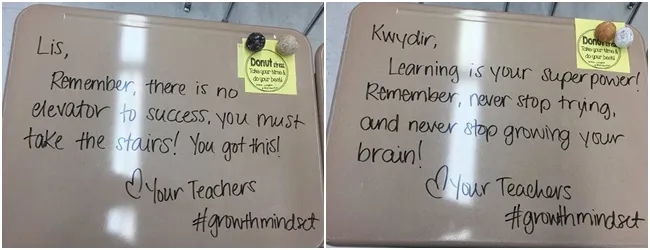 Lis,
Remember, there is no
elevator to success, you must
take the stairs! You got this!
♡ Your Teachers
#growthmindset
Donut stress
Take your time &
do your best!
Kwydir,
Learning is your superpower!
Remember, never stop trying,
and never stop growing your
brain!
♡ Your Teachers
#growthmindset
Donut stress
Take your time &
do your best!